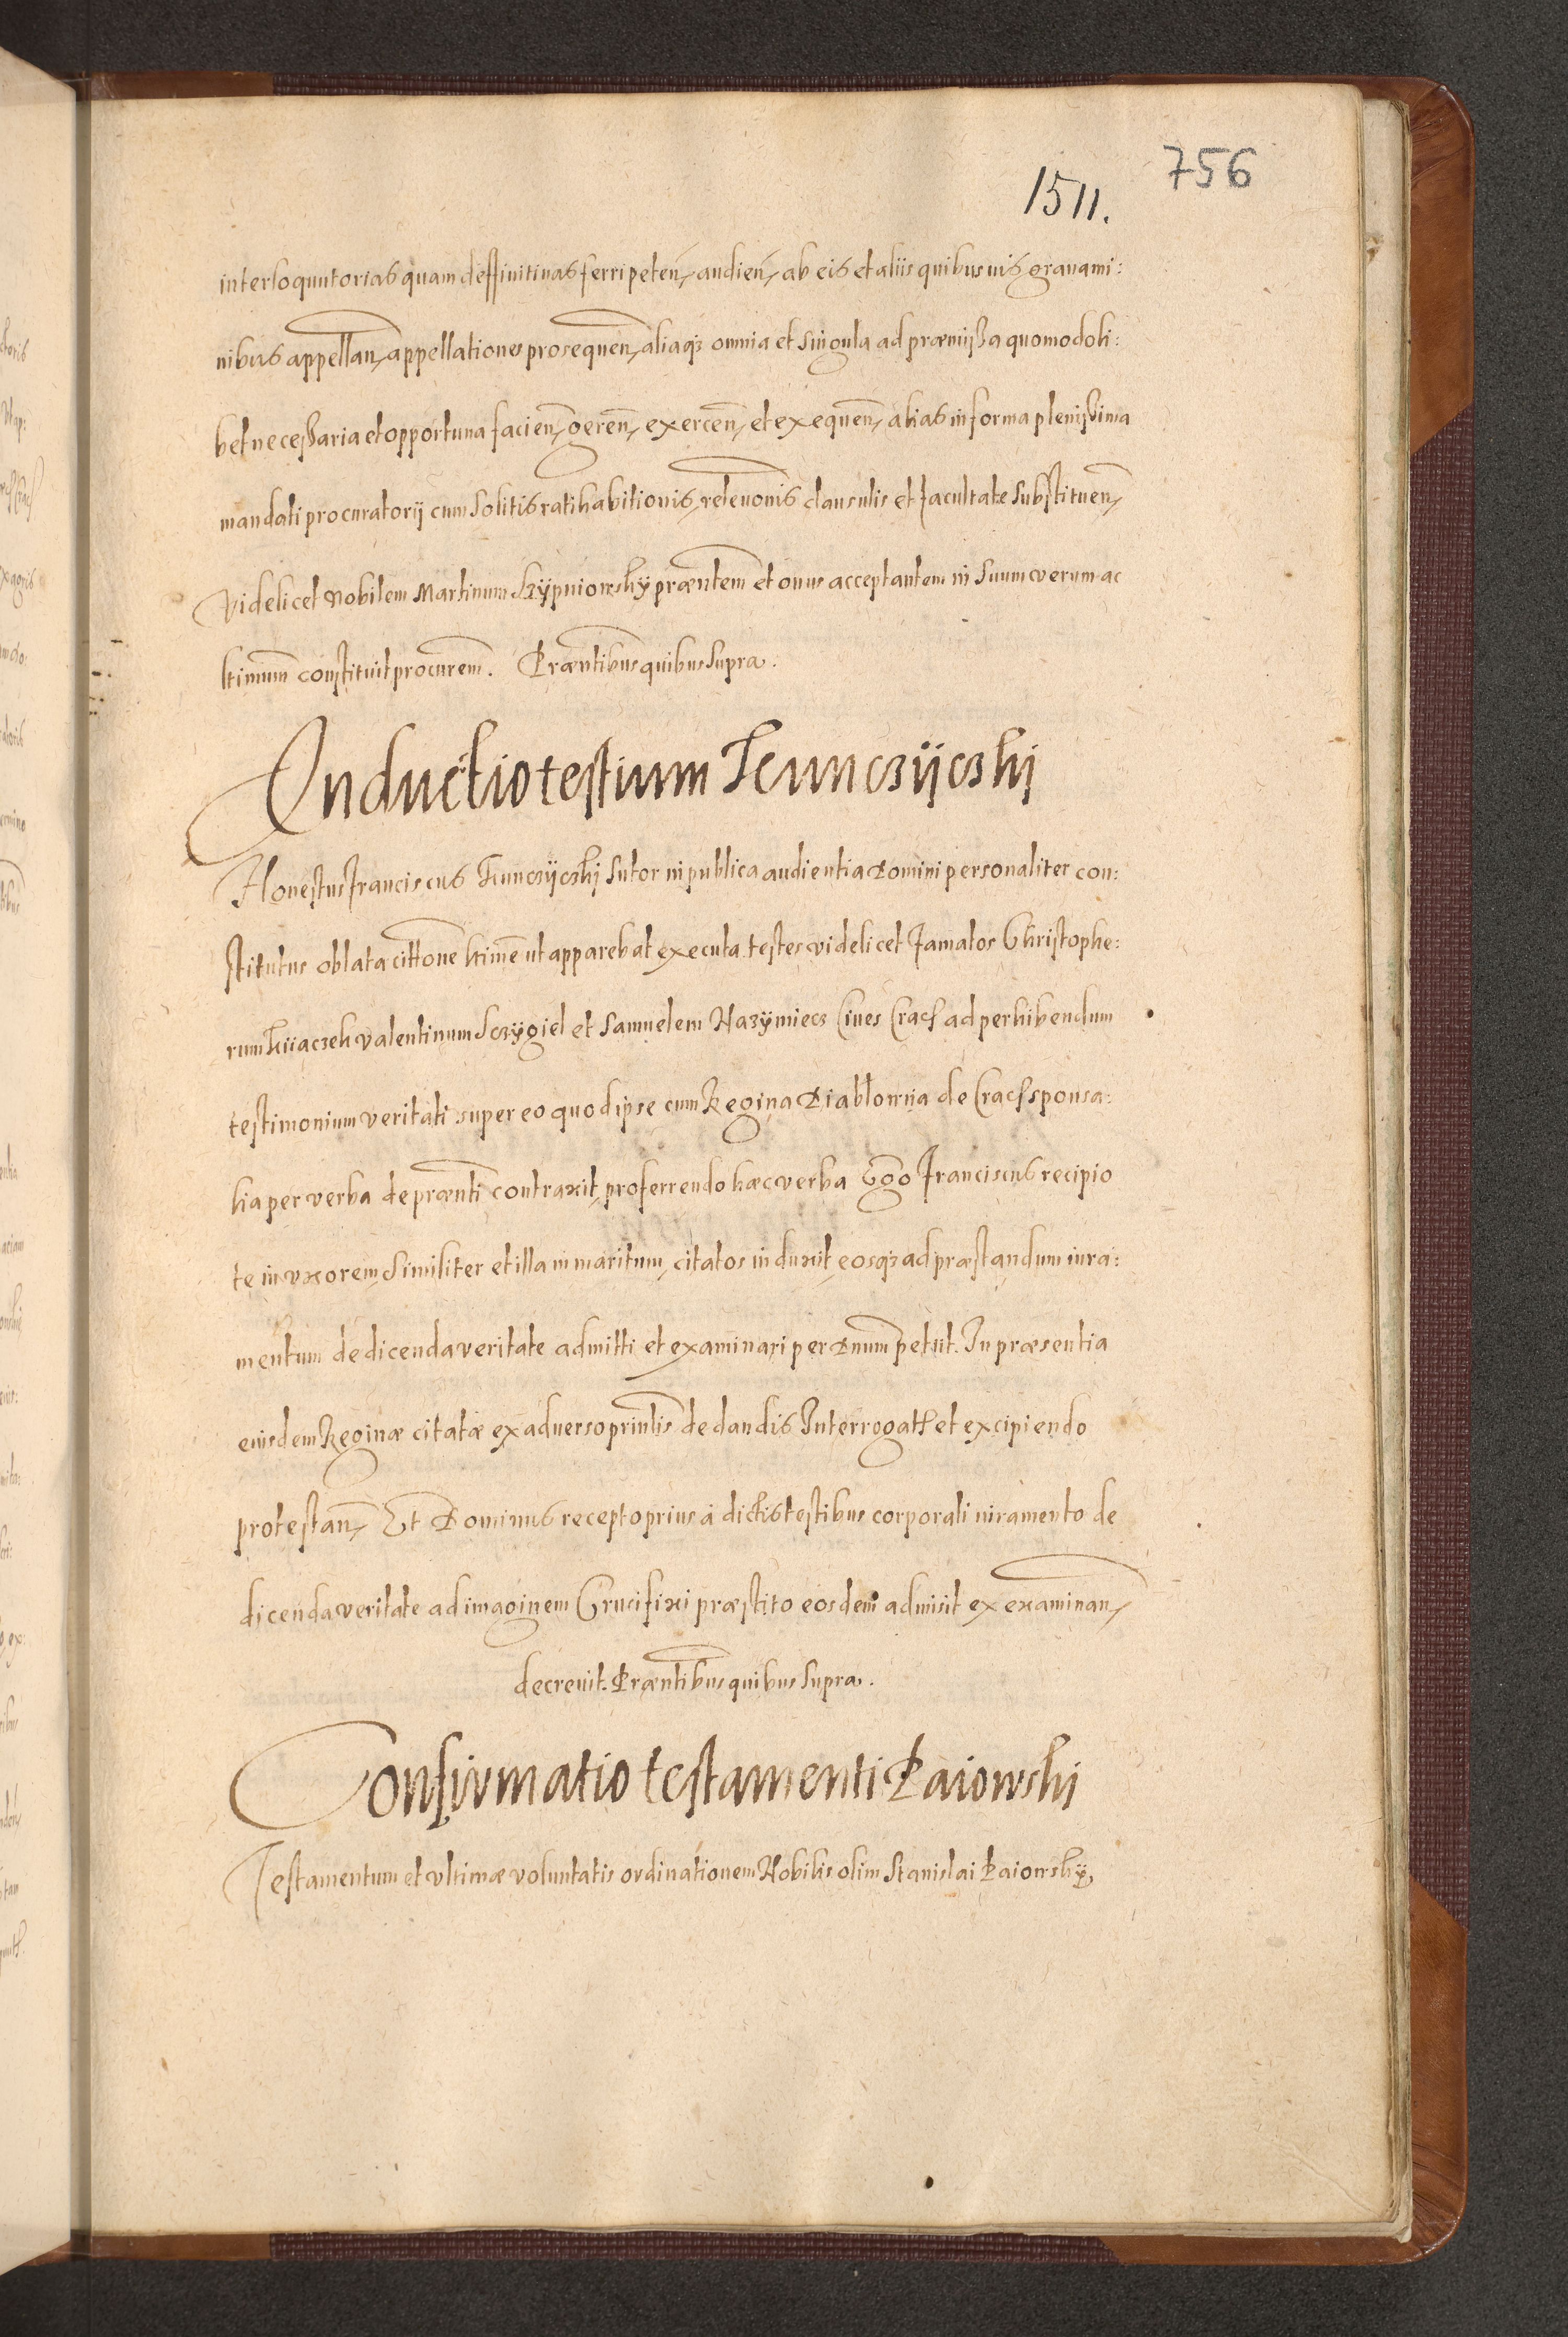 756
1511.
interloquutorias quam deffinitivas ferri peten, audien, ab eis et aliis quibusuis gravami:
nibus appellan, appellationes prosequen, aliaq3 omnia et singula ad præmißa quomodoli:
bet neceßaria et opportuna facien, geren, exercen, et exequen, alias in forma plenißima
mandati procuratorij cum solitis ratihabitionis, relevonis clausulis et facultate substituen,
Videlicet Nobilem Martinum Skÿpniowskÿ præntem et onus acceptantem in suum verum ac
ltimum constituit procurem. Præntibus quibus supra.
Inductio testium
Honestus Franciscus sutor in publica audientia Domini personaliter con:
stitutus oblata cittone ltime ut apparebat executa testes videlicet famatos Christophe:
rum Kiiaczek Valentinum Sczÿgiel et Samuelem Nazÿmiecz Cives Crac ad perhibendum
testimonium veritati super eo quod ipse cum Regina Diablowna de Crac sponsa:
lia per verba de prænti contraxit, proferrendo hæc verba Ego Franciscus recipio
te in uxorem, similiter et illa in maritum, citatos induxit, eosq3 ad præstandum iura:
mentum de dicenda veritate admitti et examinari per Dnum petiit. In præsentia
eiusdem Reginæ citatæ ex adverso prinlis de dandis Interrogat et excipiendo
protestan, Et Dominus recepto prius á dictis testibus corporali iuramento de
dicenda veritate ad imaginem Crucifixi præstito eosdem admisit ex examinan,
decrevit. Præntibus quibus supra.
Confirmatio testamenti Paiowski
Testamentum et ultimæ voluntatis ordinationem Nobilis olim Stanislai Paiowskÿ,